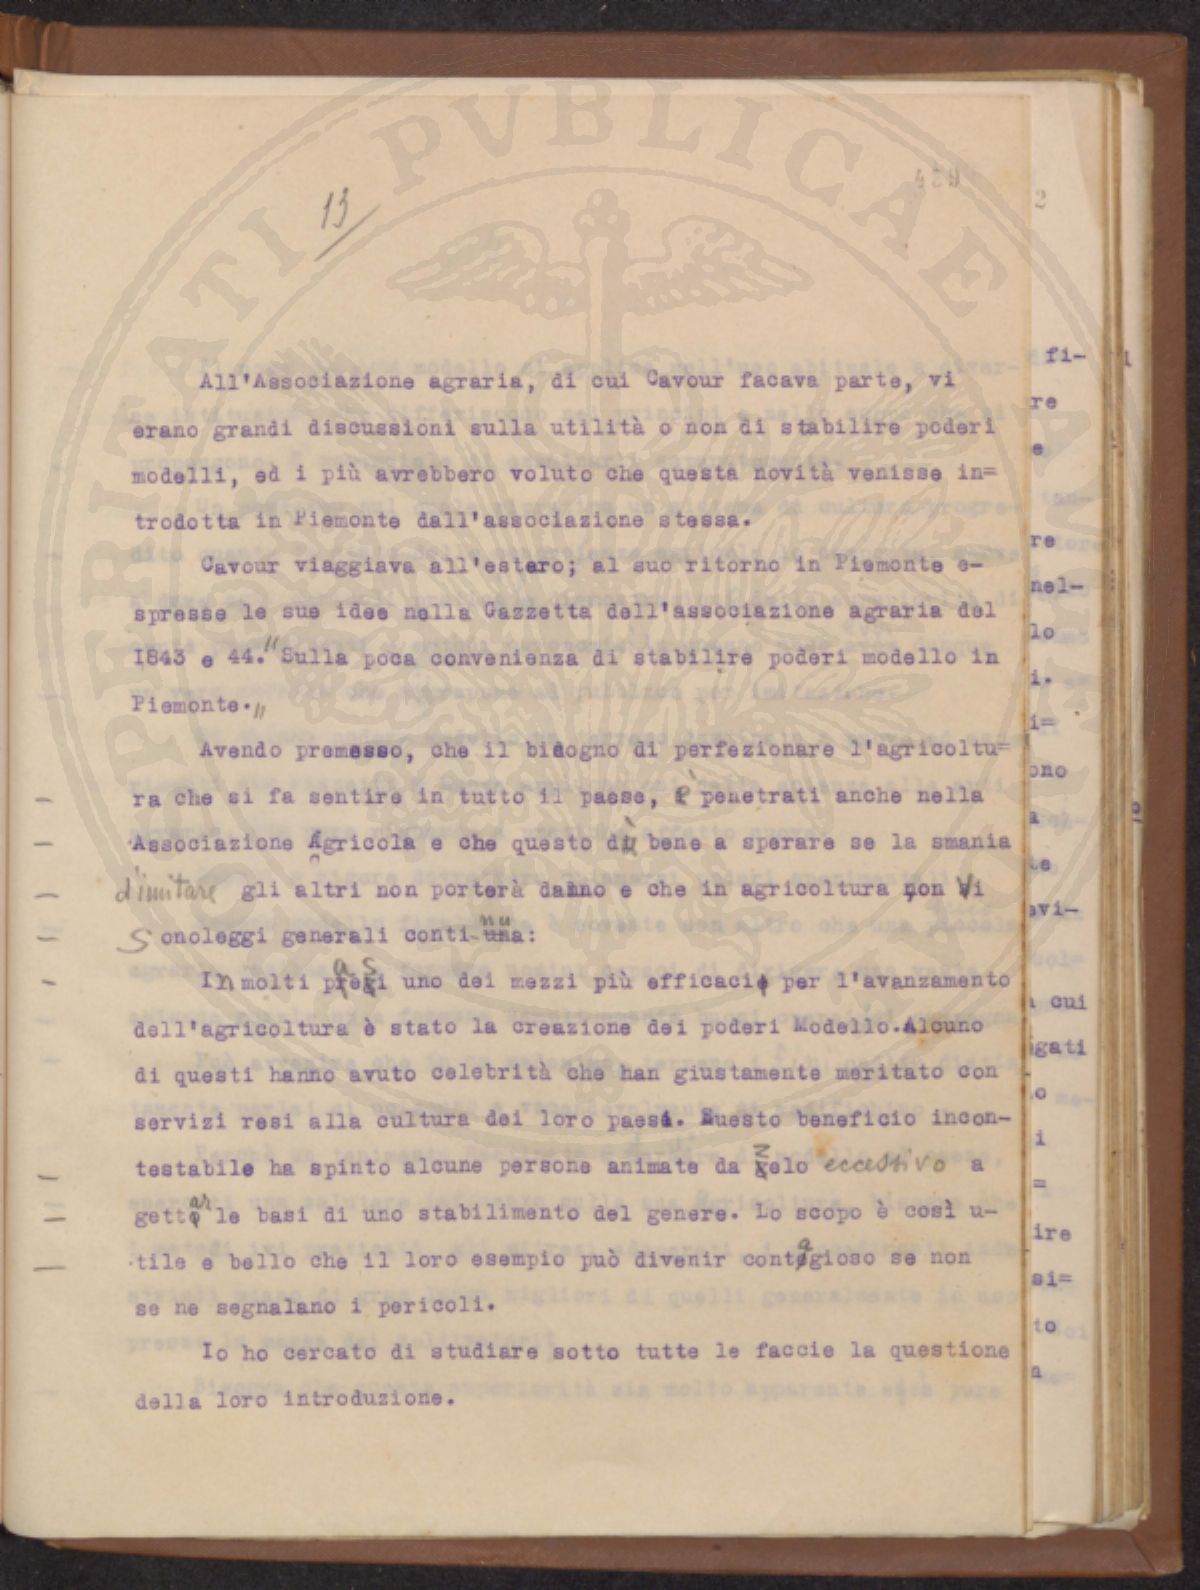 PROSPERITATI PVBLICAE AVGENDAE
430
13
2
All'Associazione agraria, di cui Cavour facava parte, vi
erano grandi discussioni sulla utilità o non di stabilire poderi
modelli, ed i più avrebbero voluto che questa novità venisse in=
trodotta in Piemonte dall'associazione stessa.
Cavour viaggiava all'estero; al suo ritorno in Piemonte e-
spresse le sue idee nella Gazzetta dell'associazione agraria del
I843 e 44." Sulla poca convenienza di stabilire poderi modello in
Piemonte."
Avendo premesso, che il bidogno di perfezionare l'agricoltu=
ra che si fa sentire in tutto il paese, è penetrati anche nella
Associazione Agricola e che questo dà bene a sperare se la smania
d'imitare gli altri non porterà danno e che in agricoltura non Vi
S onoleggi generali conti nua:
In molti paesi uno dei mezzi più efficaci per l'avanzamento
dell'agricoltura è stato la creazione dei poderi Modello.Alcuno
di questi hanno avuto celebrità che han giustamente meritato con
servizi resi alla cultura dei loro paesi. Questo beneficio incon-
testabile ha spinto alcune persone animate da zelo eccessivo a
gettar le basi di uno stabilimento del genere. Lo scopo è così u-
tile e bello che il loro esempio può divenir contagioso se non
se ne segnalano i pericoli.
Io ho cercato di studiare sotto tutte le faccie la questione
della loro introduzione.
fi-
re
e
re
nel-
lo
i.
i=
ono
a
te
evi-
a cui
gati
o
i
=
ire
si=
to
a